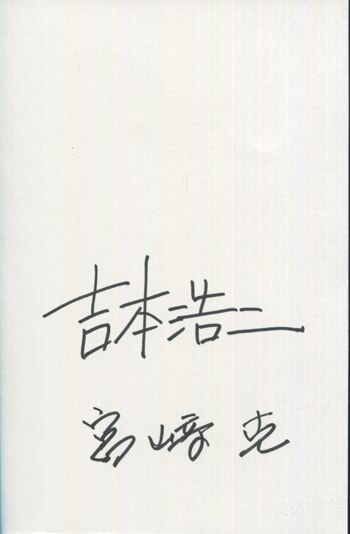 吉本浩二
宮﨑克